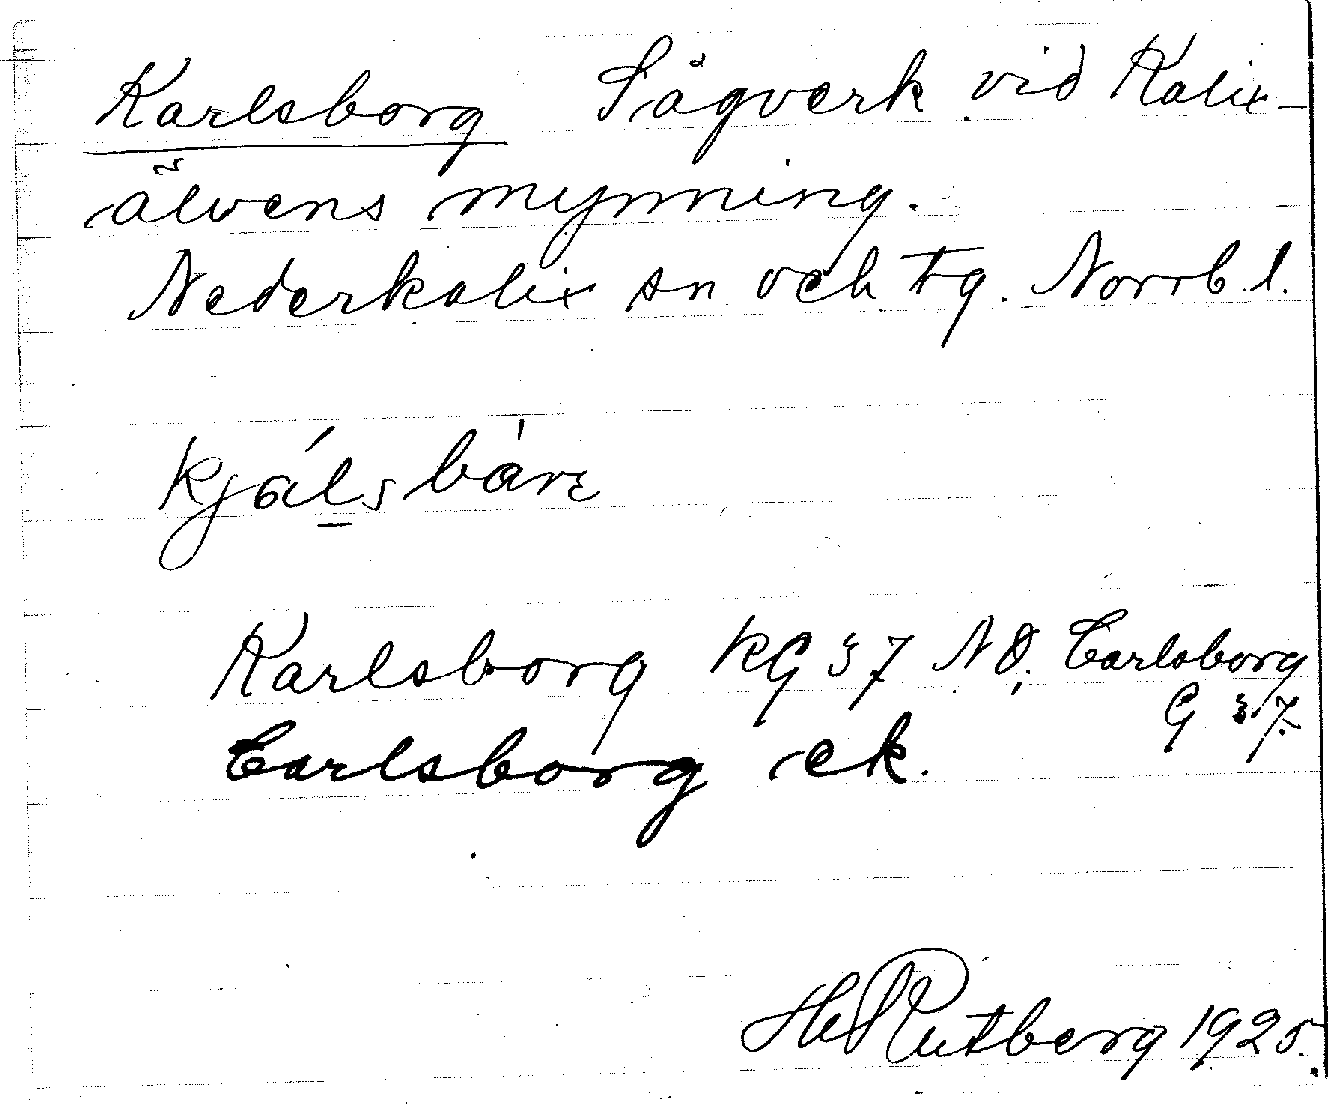 Karlsborg Sågverk vid Kalix-
älvens mynning.
Nederkalix sn och tg. Norrb. l.
kjálsbàrε
Karlsborg KG 37 NO. Carlsborg
G 37.
Carlsborg ek.
H Rutberg 1925.